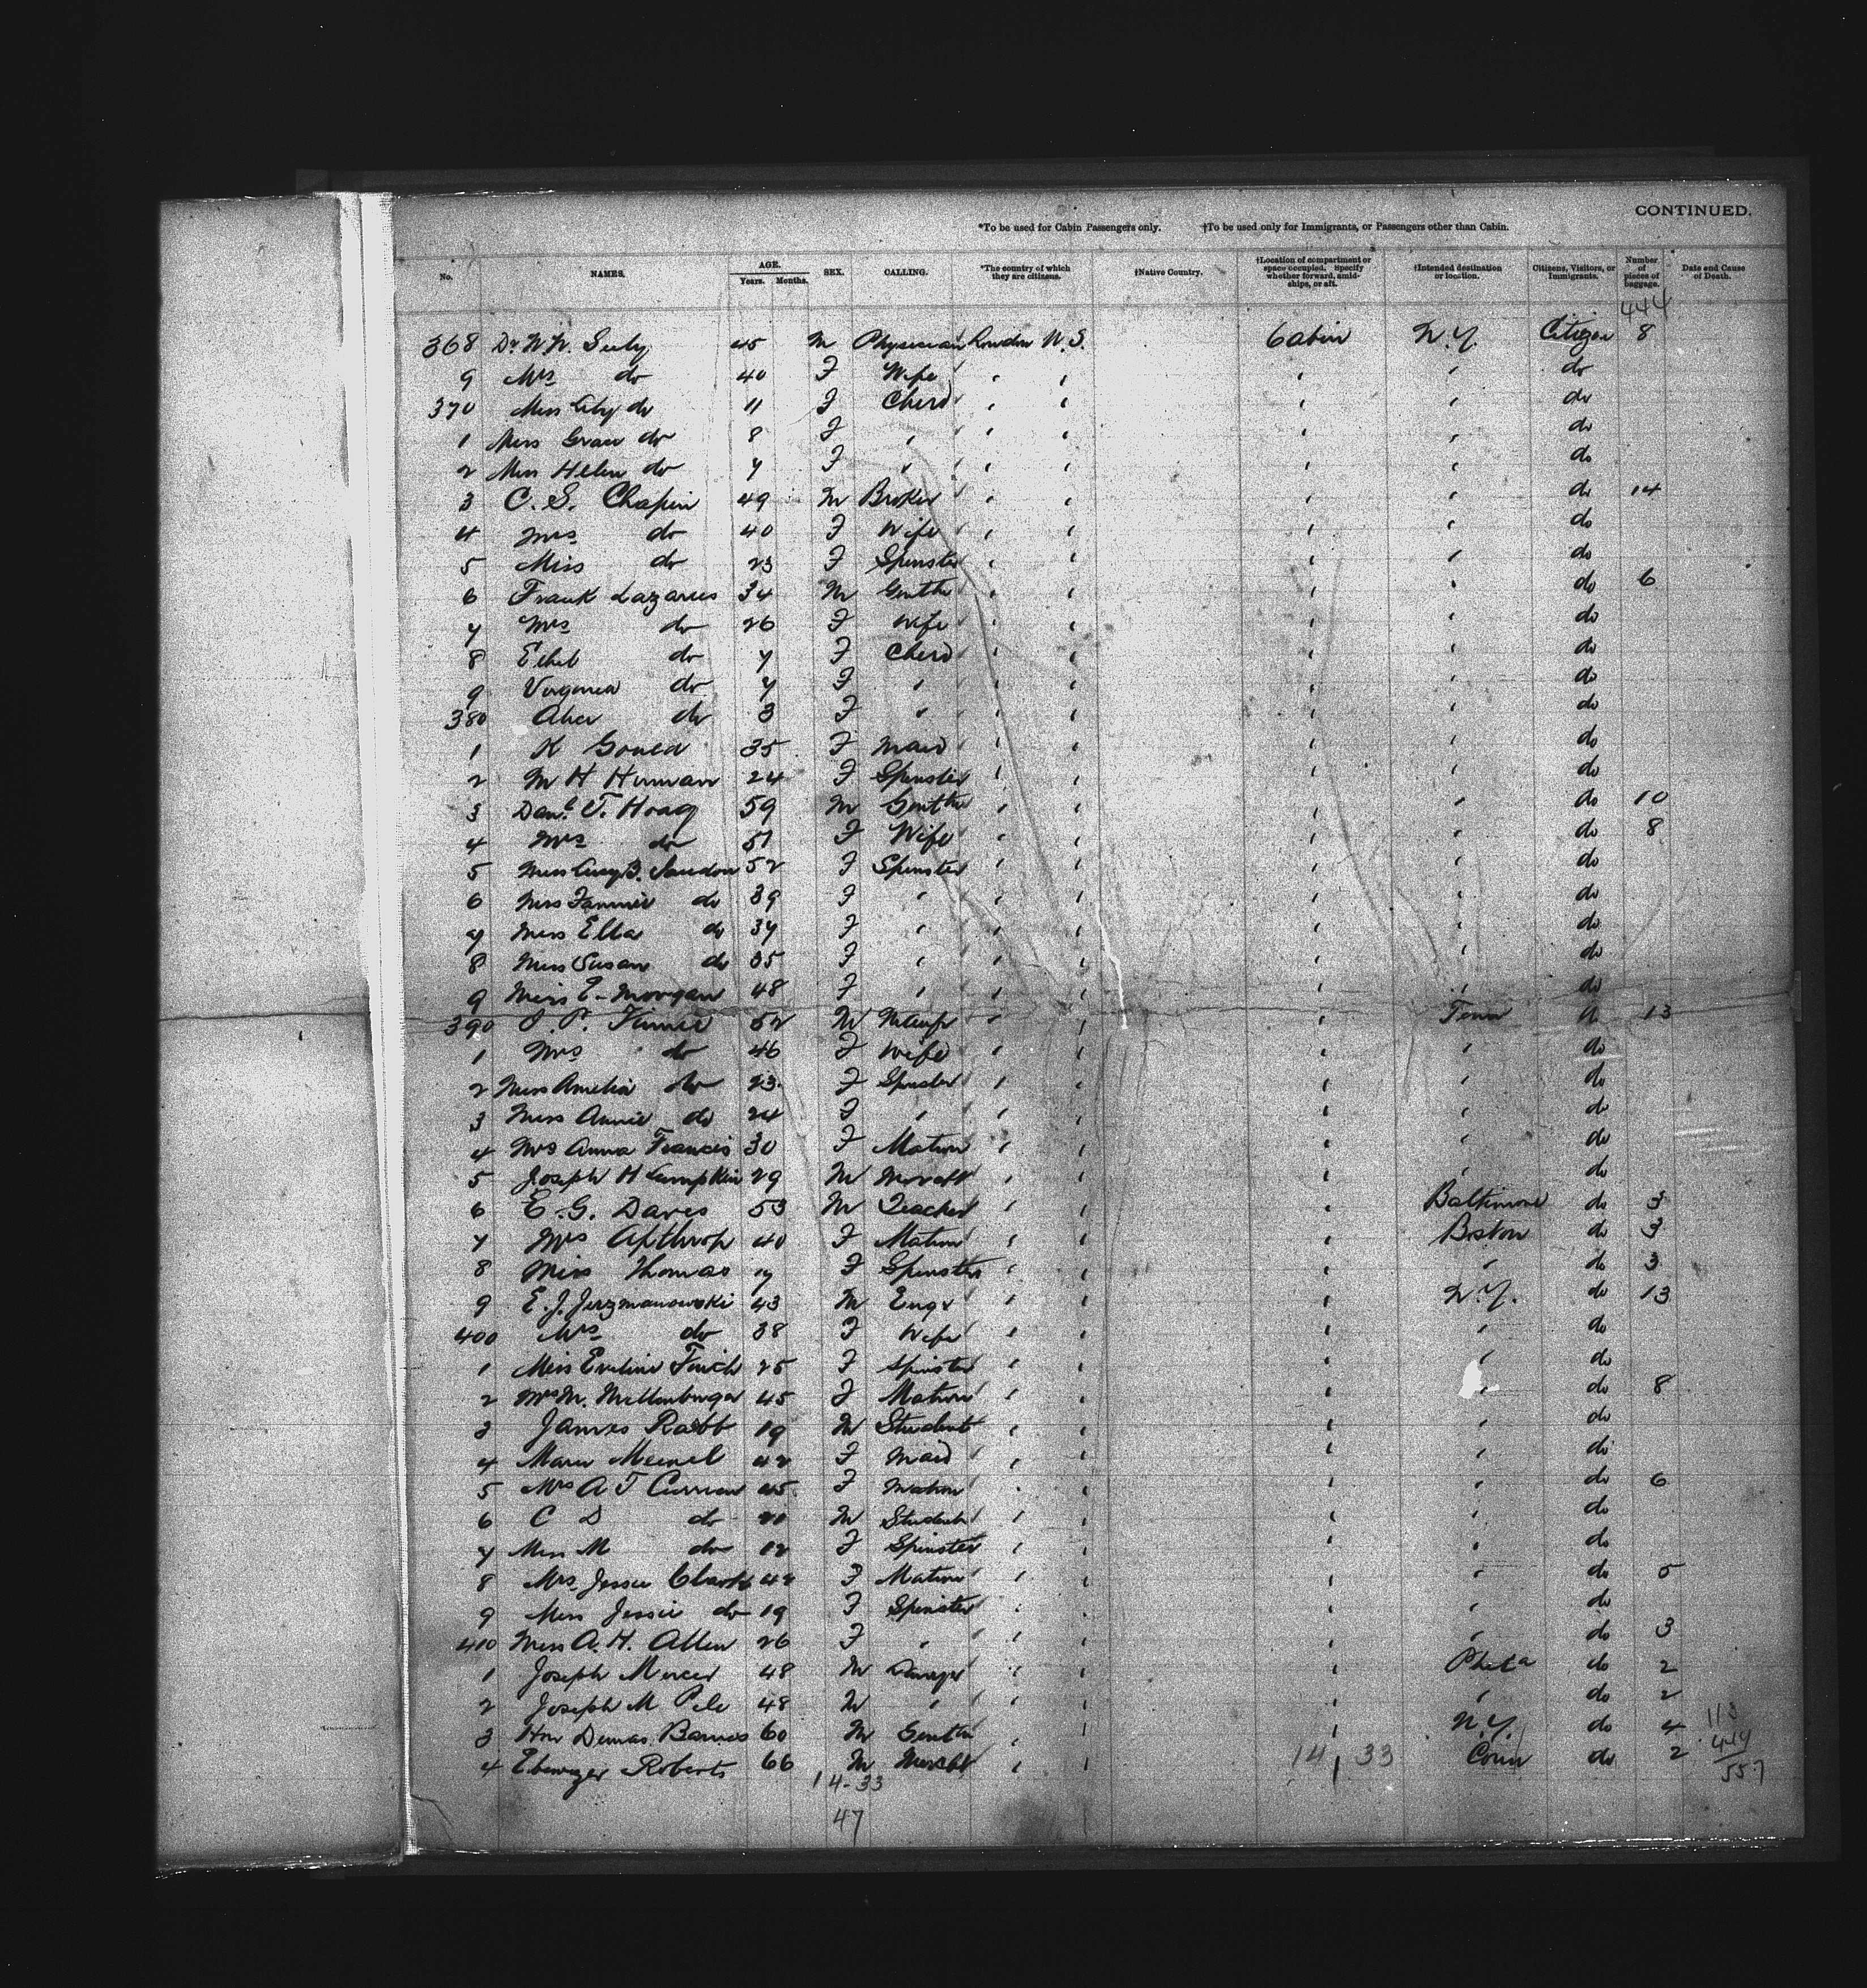 CONTINUED.
*To be used for Cabin Passengers only. †To be used only for Immigrants, or Passengers other than Cabin.
No. NAMES. AGE. Years. Months. SEX. CALLING. *The country of which they are citizens. †Native Country. †Location of compartment or space occupied. Specify whether forward, amidships, or aft. †Intended destination or location. Citizens, Visitors, or Immigrants. Number of pieces of baggage. Date and Cause of Death.
444
368 Dr W.W. Seely 45 M Physician London U.S. Cabin N.Y. Citizen 8
9 Mrs do 40 F Wife " " " " do
370 Miss do 11 F Child " " " " do
1 Miss Grace do 8 F " " " " " do
2 Miss Helen do 7 F " " " " " do
3 C. S. Chapin 49 M Broker " " " " do 14
4 Mrs do 40 F Wife " " " " do
5 Miss do 23 F Spinster " " " " do
6 Frank Lazarus 34 M Gentln " " " " do 6
7 Mrs do 26 F Wife " " " " do
8 Ethel do 7 F Child " " " " do
9 Virginia do 7 F " " " " " do
380 Alice do 3 F " " " " " do
1 K Gould 35 F Maid " " " " do
2 M H Herman 24 F Spinster " " " " do
3 Danl. T. Hoag 59 M Gentln " " " " do 10
4 Mrs do 51 F Wife " " " " do 8
5 Miss Lucy B. 52 F Spinster " " " " do
6 Miss Fannie do 39 F " " " " " do
7 Miss Ella do 37 F " " " " " do
8 Miss Susan do 35 F " " " " " do
9 Miss E. Morgan 48 F " " " " " do
390 P. 52 M " " " Tenn do 13
1 Mrs do 46 F Wife " " " " do
2 Miss Amelia do 23 F Spinster " " " " do
3 Miss Annie do 24 F " " " " " do
4 Mrs Anna Francis 30 F Matron " " " " do
5 Joseph H Lumpkin 29 M Mercht " " " " do
6 E. G. Davis 53 M Teacher " " " Baltimore do 3
7 Mrs Apthrop 40 F Matron " " " Boston do 3
8 Miss Thomas 17 F Spinster " " " " do 3
9 E. J. Jerzmanowski 43 M Engr " " " N.Y. do 13
400 Mrs do 38 F Wife " " " " do
1 Miss Eveline Finch 25 F Spinster " " " " do
2 Mrs M. Miltenberger 45 F Matron " " " " do 8
3 James Rabb 19 M Student " " " " do
4 Marie Meinel 42 F Maid " " " " do
5 Mrs A T Curran 45 F Matron " " " " do 6
6 C D do 21 M Student " " " " do
7 Miss M do 12 F Spinster " " " " do
8 Mrs Jessie Clark 42 F Matron " " " " do 5
9 Miss Jessie do 19 F Spinster " " " " do
410 Miss A. H. Allen 26 F " " " " " do 3
1 Joseph Mercer 48 M " " " Phila do 2
2 Joseph M 48 M " " " " " do 2
3 Hon Demas Barnes 60 M Gentln " " " N.Y. do 4
4 Ebenezer Roberts 66 M Mercht " " " Conn do 2
14 33
113
444
557
14-33
47